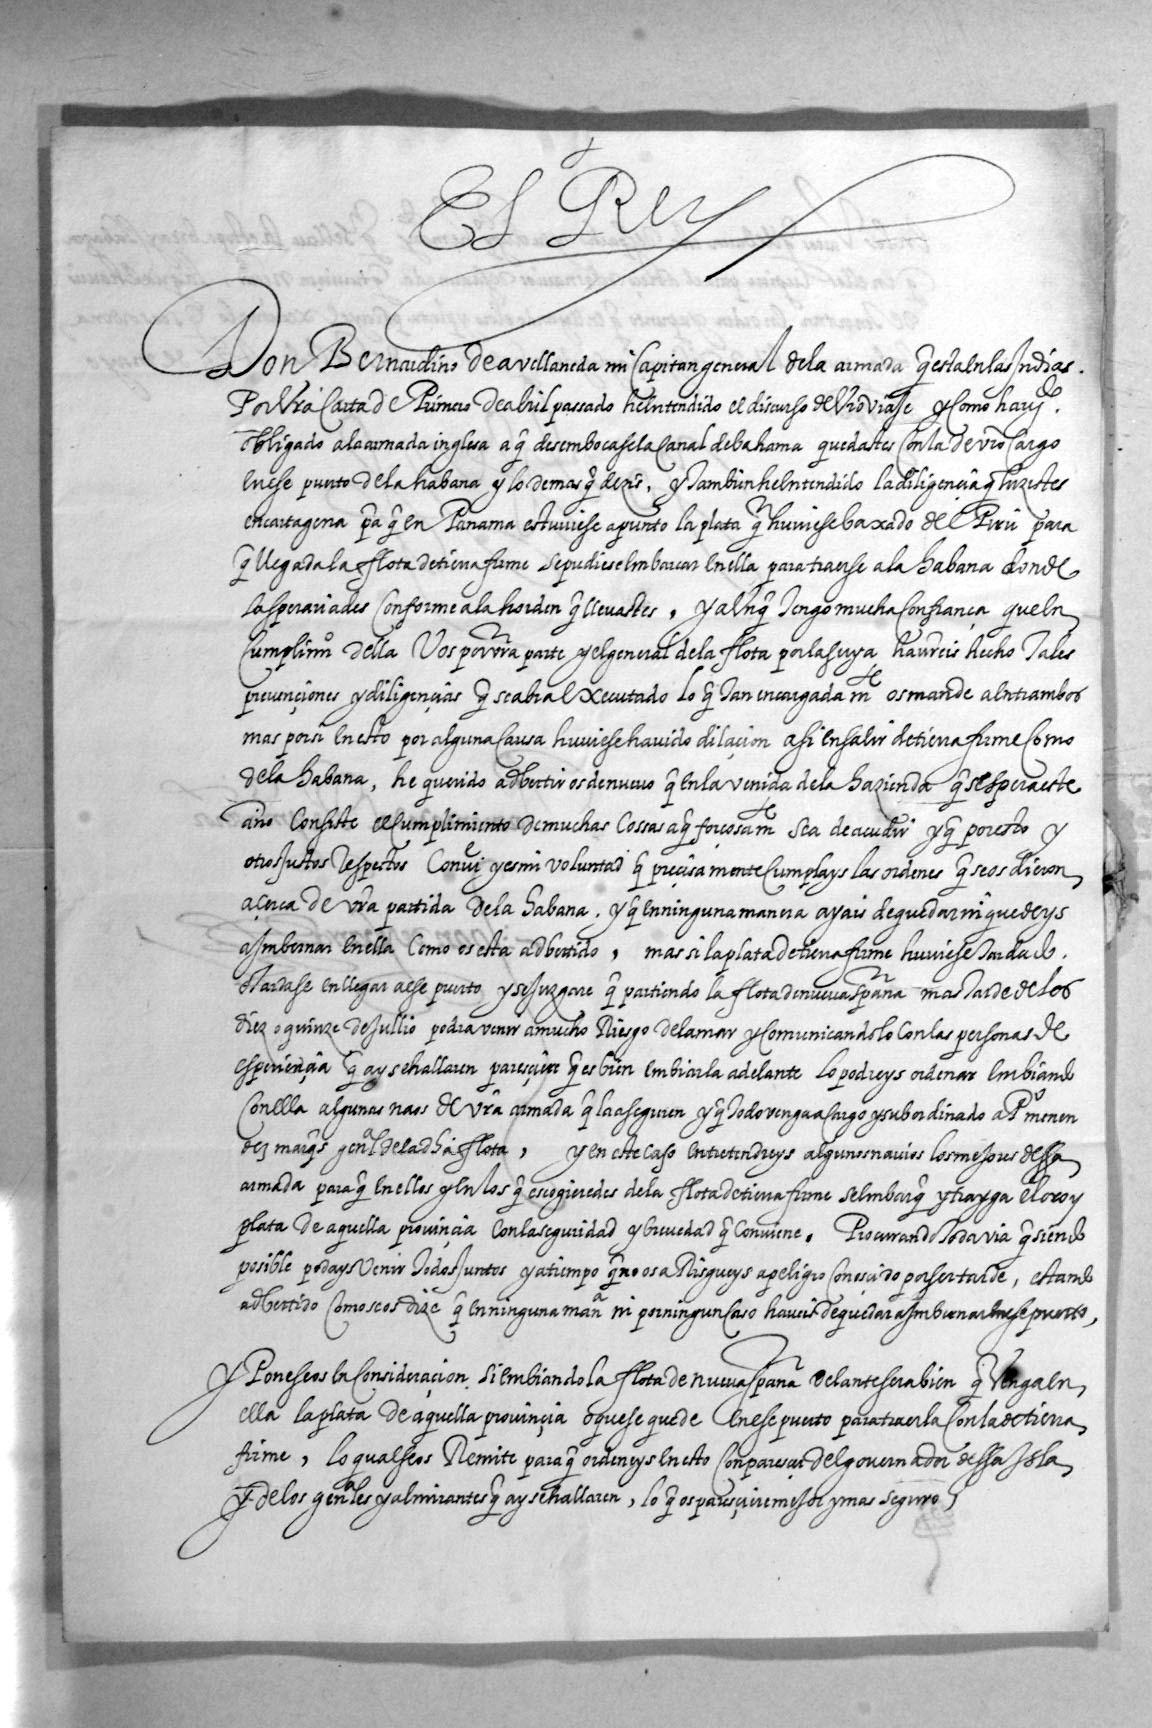 El Rey
Don Bernardino de avellaneda mi Capitan general dela armada q̃ esta en las Indias.
Por vrã Carta de Primero de abril passado he entendido el discurso de vrõ viaje y como havi.do
obligado a la armada inglesa a q̃ desembocase la Canal de bahama quedastes con la de vrõ cargo
en ese puerto de la habana y lo demas q̃ dezis, y tambien he entendido la diligençia q̃ hizistes
en cartagena pã q̃ en Panama estuuiese apunto la plata q̃ huuiese baxado del Piru para
q̃ llegada la flota de tierra firme se pudiese embarcar en ella para traerse a la habana donde
la sperariades conforme a la horden q̃ lleuastes, y aunq̃ tengo mucha confiança que en
cumplimiº della Vos por vrã parte y el general de la flota por la suya havreis hecho tales
prevençiones y diligençias q̃ se abra executado lo q̃ tan encargadamte os mande a entrambos
mas por si en esto por alguna causa huuiese hauido dilaçion asi en salir de tierra firme como
de la habana, he querido adbertiros de nueuo q̃ en la venida de la hazienda q̃ se spera este
año consiste el cumplimiento de muchas cossas a q̃ forçosamte sea de acudir y q̃ por esto y
otros justos respectos convie y es mi voluntad q̃ preçisamente cumplays las ordenes q̃ se os dieron
açerca de vrã partida de la habana. y q̃ en ninguna manera ayais de quedar ni quedeys
a imbernar en ella como os esta adbertido, mas si la plata de tierra firme huuiese tardado.
o tardase en llegar a ese puerto y se juzgare q̃ partiendo la flota de nueua spaña mas tarde de los
diez o quinze de jullio podra venir a mucho Riesgo de la mar y comunicandolo con las personas de
esperiençia q̃ ay se hallaren paresçiere q̃ es bien embiarla adelante lo podreys ordenar embiando
con ella algunas naos de vrã armada q̃ la aseguren y q̃ todo venga a cargo y subordinado a Pº menen
dez marq̃s genal de la dhã flota, y en este caso entretendreys algunos navios los mejores dessa
armada para q̃ en ellos y en los q̃ escogieredes de la flota de tierra firme se embarq̃ y trayga el oro y
plata de aquella provinçia con la seguridad y breuedad q̃ conuiene. Procurando todavia q̃ siendo
posible podays venir todos juntos y a tiempo q̃ no os aRisgueys a peligro conoscido por ser tarde, estando
adbertido como se os dize q̃ en ninguna manª ni por ningun caso haueis de quedar a imbernar en ese puerto,
y Poneseos en consideraçion si embiando la flota de nueua spaña delante sera bien q̃ venga en
ella la plata de aquella provinçia o que se quede en ese puerto para traerla con la de tierra
firme, lo qual se os Remite para q̃ ordeneys en esto con paresçer del gouernador dessa Isla
y de los genales y almirantes q̃ ay se hallaren, lo q̃ os paresçiere mejor y mas seguro,